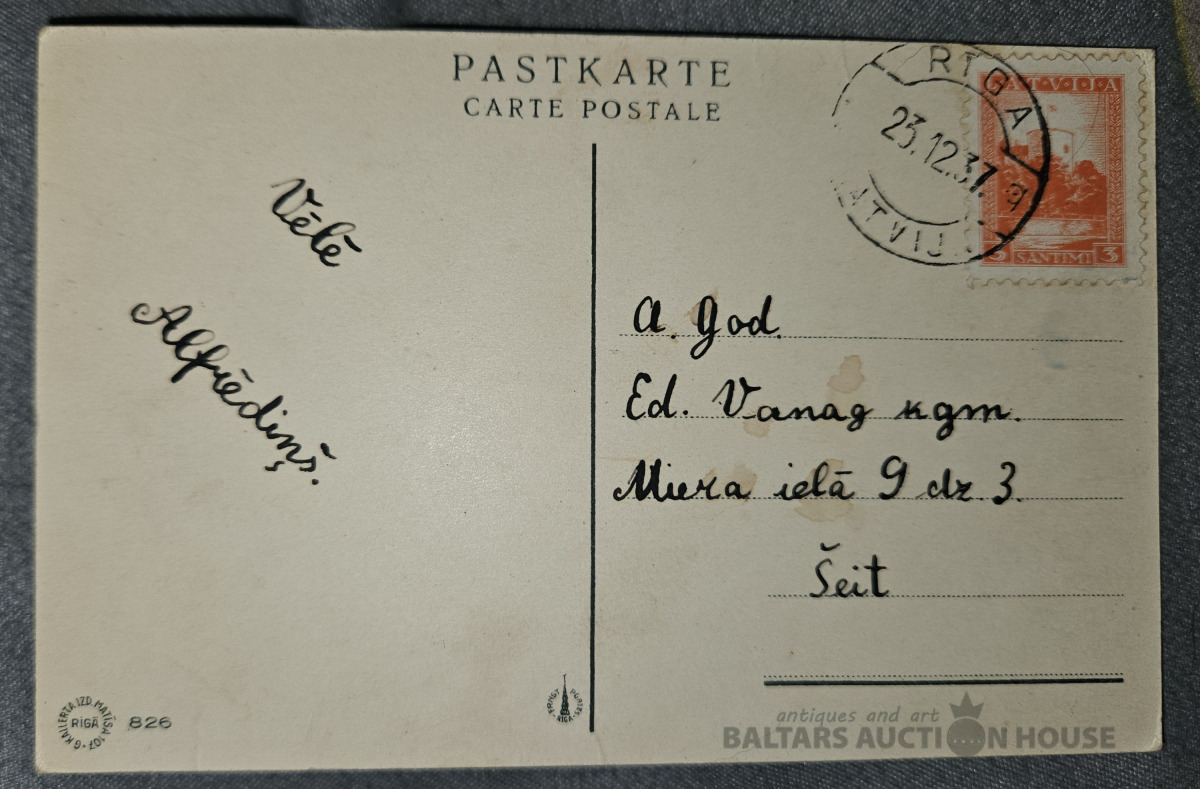 PASTKARTE
CARTE POSTALE
RIGA
23.12.37.
LATVIJA
LATVIJA
3 SANTIMI 3
Vēlē
Alfrēdiņš.
A. God.
Ed. Vanag kgm.
Miera ielā 9 dz 3.
Šeit
G. KAILERTA IZD. MATĪSA 107.
RĪGĀ
826
ERNST PLATES
RĪGA
antiques and art
BALTARS AUCTION HOUSE